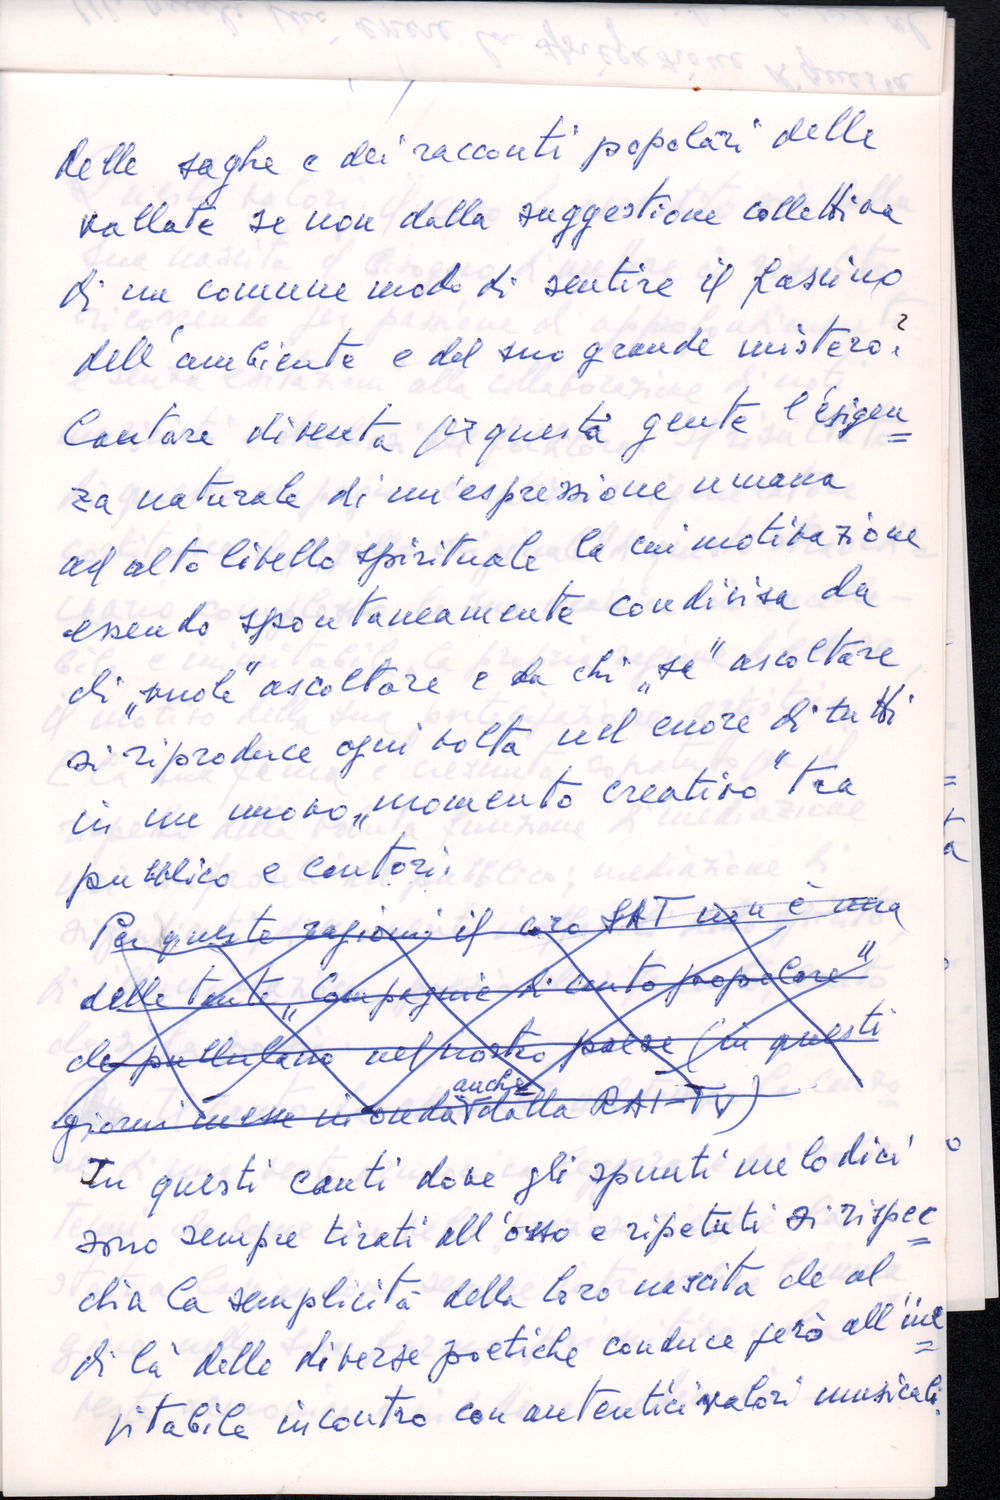 delle saghe e dei racconti popolari delle
vallate se non dalla suggestione collettiva
di un comune modo di sentire il fascino
dell'ambiente e del suo grande mistero?
Cantare diventa per questa gente l'esigen=
za naturale di un'espressione umana
ad alto livello spirituale la cui motivazione
essendo spontaneamente condivisa da
chi „vuole" ascoltare e da chi „sa" ascoltare
si riproduce ogni volta nel cuore di tutti
in un nuovo „momento creativo" tra
pubblico e cantori.
Per queste ragioni il coro SAT non è una
delle tante „Compagnie di canto popolare"
che pullulano nel nostro paese (in questi
giorni messe in onda anche dalla RAI-TV)
In questi canti dove gli spunti melodici
sono sempre tirati all'osso e ripetuti si rispec=
chia la semplicità della loro nascita che al
di là delle diverse poetiche conduce però all'ine=
vitabile incontro con autentici valori musicali.